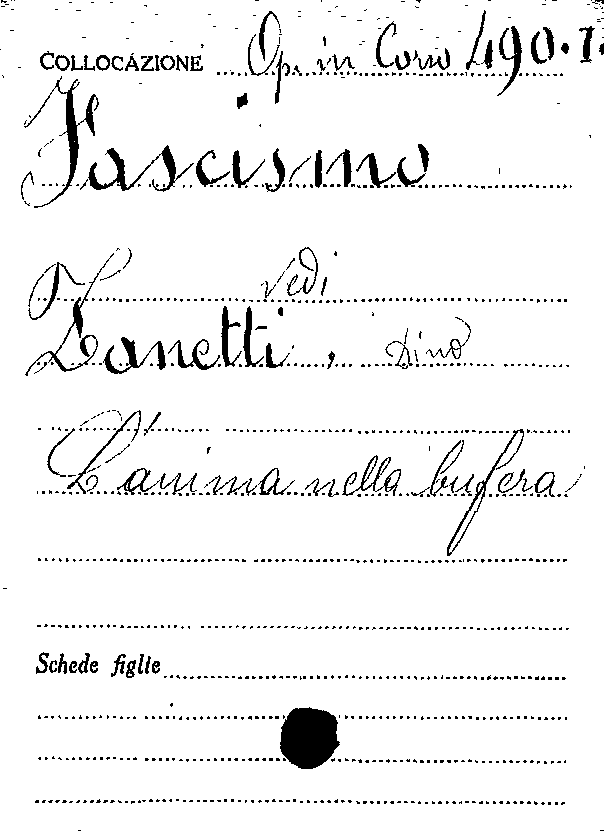 COLLOCAZIONE Op. in Corso 490.I.
Fascismo
Vedi
Zanetti, Dino
L'anima nella bufera
Schede figlie